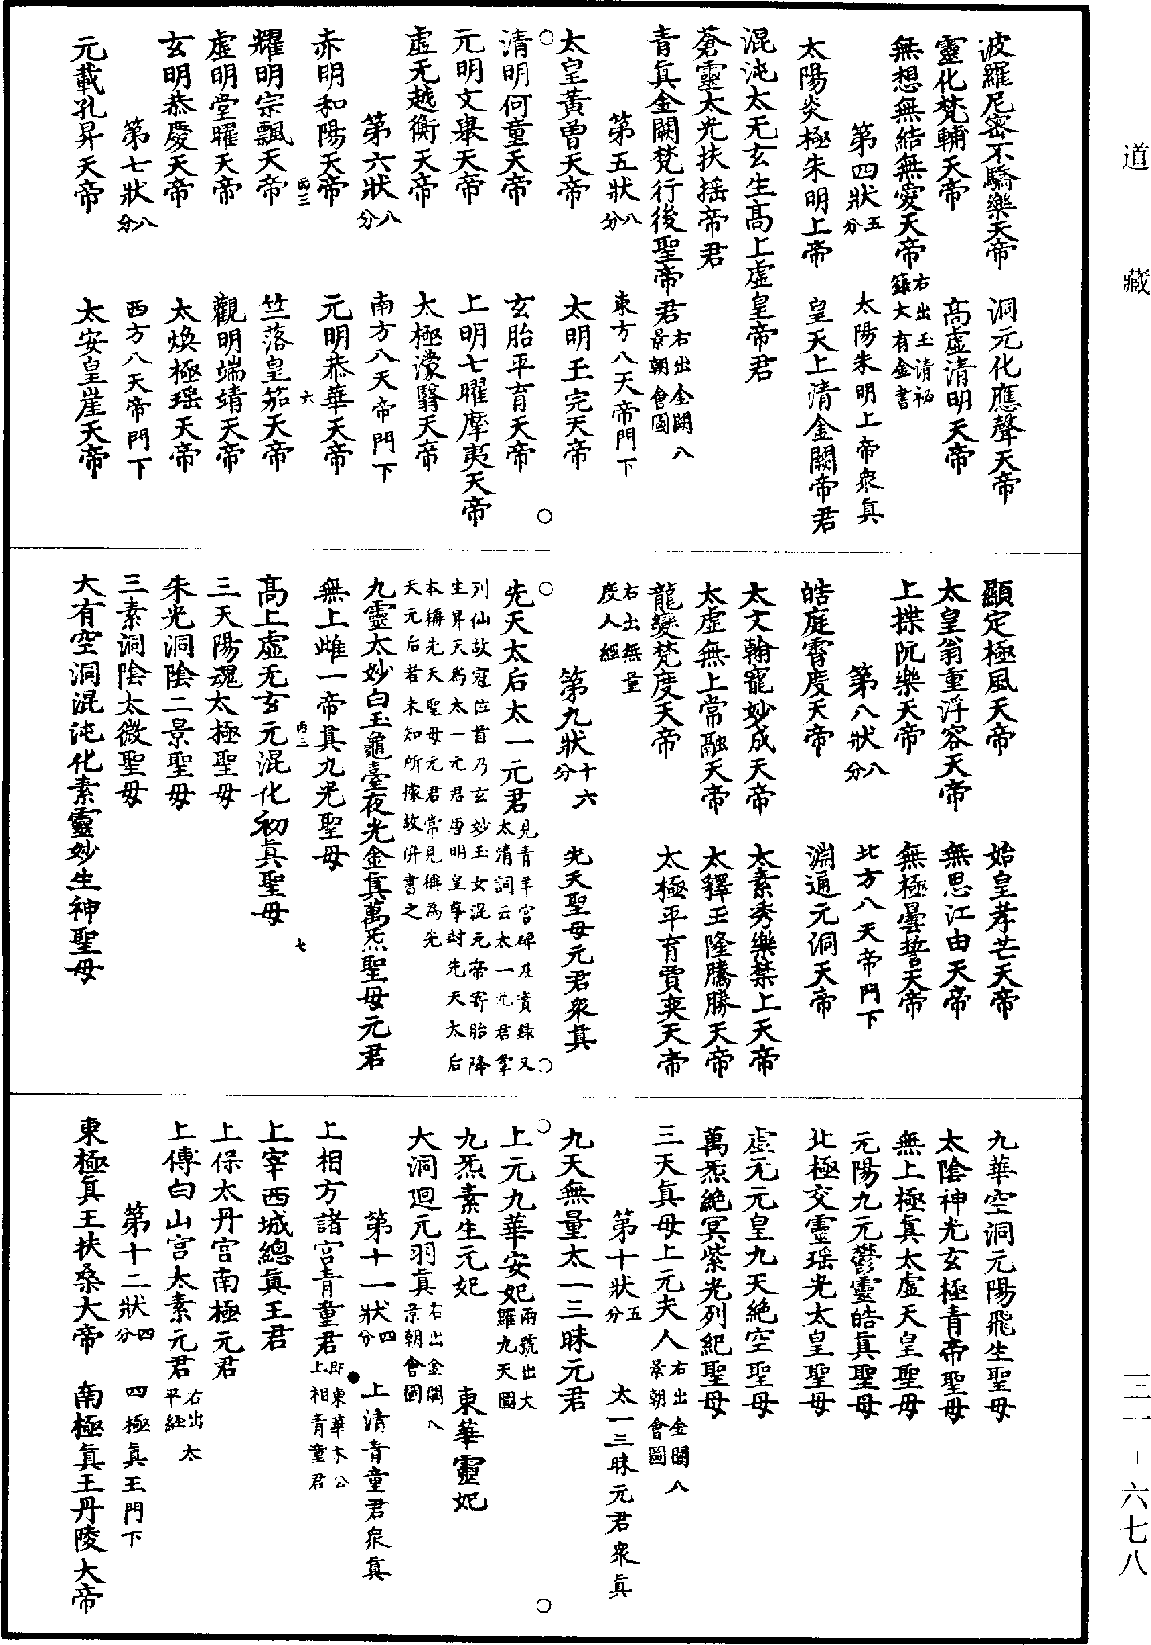 波羅尼密不驕樂天帝　洞元化應聲天帝
靈化梵輔天帝　高虛清明天帝
無想無結無愛天帝右出玉清祕籙大有金書
第四狀五分　太陽朱明上帝衆眞
太陽炎極朱明上帝　皇天上清金闕帝君
混沌太无玄生高上虛皇帝君
蒼靈太光扶搖帝君
青眞金闕梵行後聖帝君右出金闕八景朝會圖
第五狀八分　東方八天帝門下
太皇黃曾天帝　太明玉完天帝
清明何童天帝　玄胎平育天帝
元明文舉天帝　上明七曜摩夷天帝
虛无越衡天帝　太極濛翳天帝
第六狀八分　南方八天帝門下
赤明和陽天帝　元明恭華天帝
丙三　六
耀明宗飄天帝　竺落皇笳天帝
虛明堂曜天帝　觀明端靖天帝
玄明恭慶天帝　太煥極瑶天帝
第七狀八分　西方八天帝門下
元載孔昇天帝　太安皇崖天帝
顯定極風天帝　始皇孝芒天帝
太皇翁重浮容天帝　無思江由天帝
上揲阮樂天帝　無極曇誓天帝
第八狀八分　北方八天帝門下
皓庭霄度天帝　淵通元洞天帝
太文翰寵妙成天帝　太素秀樂禁上天帝
太虛無上常融天帝　太釋玉隆騰勝天帝
龍變梵度天帝　太極平育賈奕天帝
右出無量度人經
第九狀十六分　先天聖母元君衆眞
先天太后太一元君見青羊宮碑及實錄又太清詞云太一元君掌
列仙故冠位首乃玄妙玉女混元帝寄胎降
生昇天爲太一元君唐明皇奉封先天太后
本稱先天聖母元君常見稱爲先
天元后若未知所據故併書之
九靈太妙白玉龜臺夜光金眞萬炁聖母元君
無上雌一帝眞九光聖母
丙三　七
高上虛无玄元混化初眞聖母
三天陽魂太極聖母
朱光洞陰二景聖母
三素洞陰太微聖母
大有空洞混沌化素靈妙生神聖母
九華空洞元陽飛生聖母
太陰神光玄極青帝聖母
無上極眞太虛天皇聖母
元陽九元鬱靈皓眞聖母
北極交靈瑶光太皇聖母
虛无元皇九天絶空聖母
萬炁絶冥紫光列紀聖母
三天眞母上元夫人右出金闕八景朝會圖
第十狀五分　太一三昧元君衆眞
九天無量太一三昧元君
上元九華安妃兩號出大羅九天圖
九炁素生元妃　東華靈妃
大洞迴元羽眞右出金闕八景朝會圖
第十一狀四分　上清青童君衆眞
上相方諸宮青童君卽東華木公上相青童君
上宰西城總眞王君
上保太丹宮南極元君
上傅白山宮太素元君右出太平經
第十二狀四分　四極眞王門下
東極眞王扶桑大帝　南極眞王丹陵大帝
道藏
三一－六七八